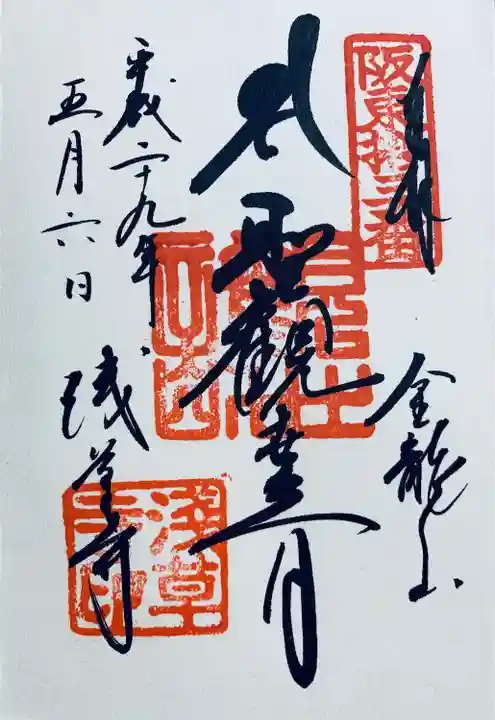 奉拝
阪東拾三番
金龍山
聖觀世音
平成二十九年
五月六日
浅草寺
淺草寺印